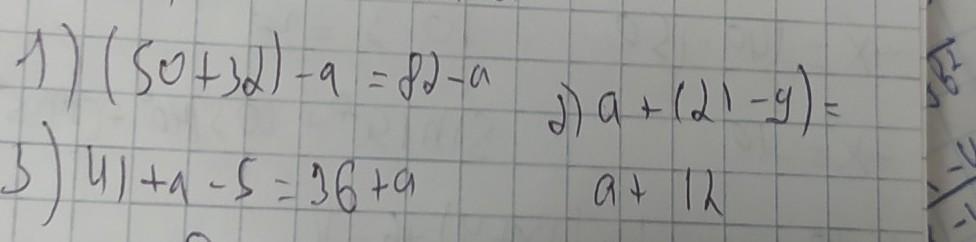 1) (50+32)-a = 82-a
2) a + (21-9)=
a + 12
3) 41+a-5=36+a